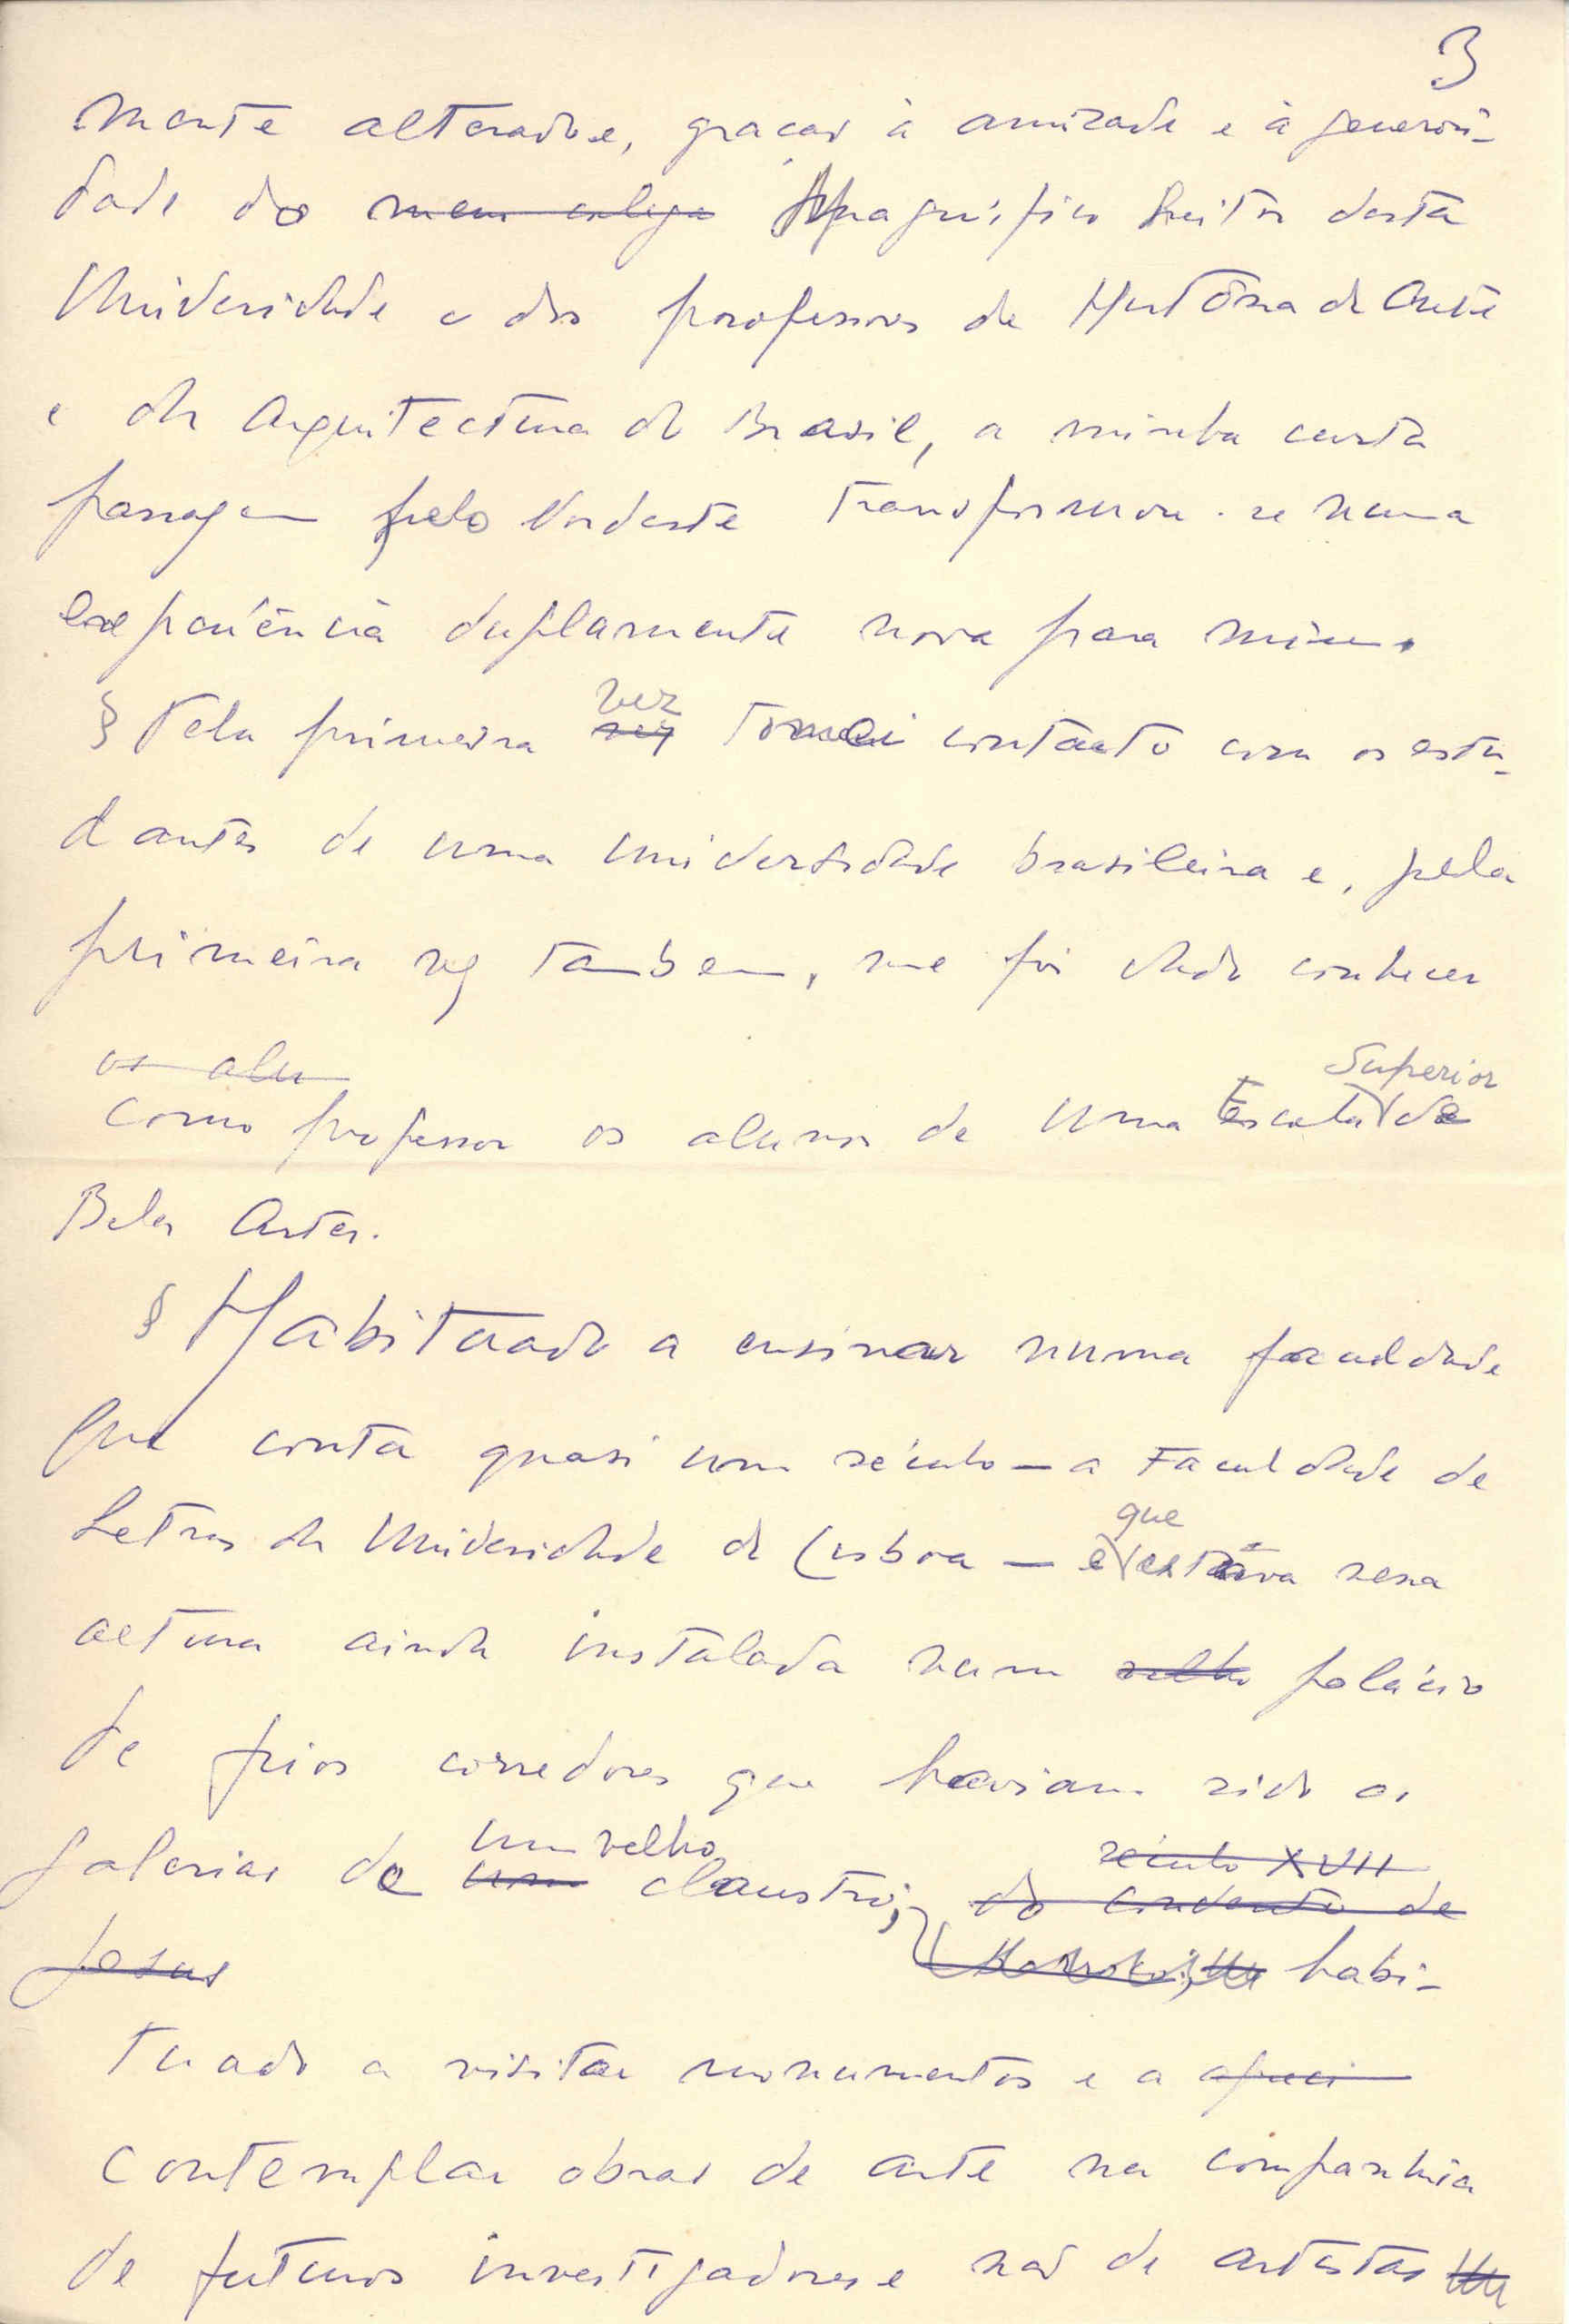 3
mente alterado e, graças à amizade e à generosi-
dade do meu colega Magnífico Reitor desta
Universidade e dos professores de História da Arte
e da Arquitectura do Brasil, a minha curta
passagem pelo Nordeste transformou-se numa
experiência duplamente nova para mim.
§ Pela primeira vez vez tomei contacto com os estu-
dantes de uma universidade brasileira e, pela
primeira vez tambem, me foi dado conhecer
os alu
como professor os alunos de uma Escola Superior de
Belas Artes.
§ Habituado a ensinar numa faculdade
que conta quasi um século — a Faculdade de
Letras da Universidade de Lisboa — e que estava nessa
altura ainda instalada num velho palácio
de frios corredores que haviam sido as
galerias de um um velho claustro, do século XVII convento de
Jesus habi-
tuado a visitar monumentos e a apreci
contemplar obras de arte na companhia
de futuros investigadores e não de artistas